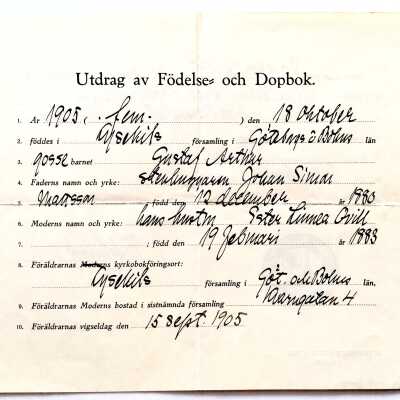 Utdrag av Födelse= och Dopbok.
1. År 1905 ( . fem. ) den 18 oktober
2. föddes i Lysekils församling i Göteborgs o Bohus län
3. gosse barnet Gustaf Arthur
4. Faderns namn och yrke: stenhuggaren Johan Simon
5. Mattsson född den 12 december år 1880
6. Moderns namn och yrke: hans hustru Ester Linnea Qvill
7. ; född den 19 februari år 1883
8. Föräldrarnas Moderns kyrkobokföringsort:
Lysekils församling i Göt. och Bohus län,
9. Föräldrarnas Moderns bostad i sistnämnda församling 4
10. Föräldrarnas vigseldag den 15 sept. 1905